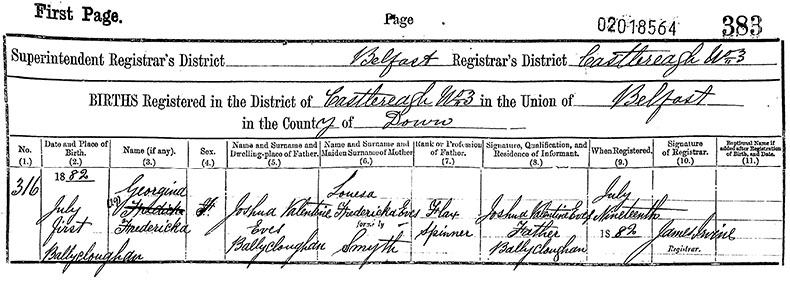 First Page.
Page
02018564
383
Superintendent Registrar's District Belfast Registrar's District Castlereagh No 3
BIRTHS Registered in the District of Castlereagh No 3 in the Union of Belfast
in the County of Down
No.
(1.)
Date and Place of
Birth.
(2.)
Name (if any).
(3.)
Sex.
(4.)
Name and Surname and
Dwelling-place of Father.
(5.)
Name and Surname and
Maiden Surname of Mother
(6.)
Rank or Profession
of Father.
(7.)
Signature, Qualification, and
Residence of Informant.
(8.)
When Registered.
(9.)
Signature
of Registrar.
(10.)
Baptismal Name if
added after Registration
of Birth, and Date.
(11.)
316
1882
July
first
Ballycloughan
Georgina
Fredericka
F
Joshua Valentine
Eves
Ballycloughan
Louesa
Fredericka Eves
formerly
Smyth
Flax
Spinner
Joshua Valentine Eves
Father
Ballycloughan
July
Nineteenth
1882
James Irvine
Registrar.